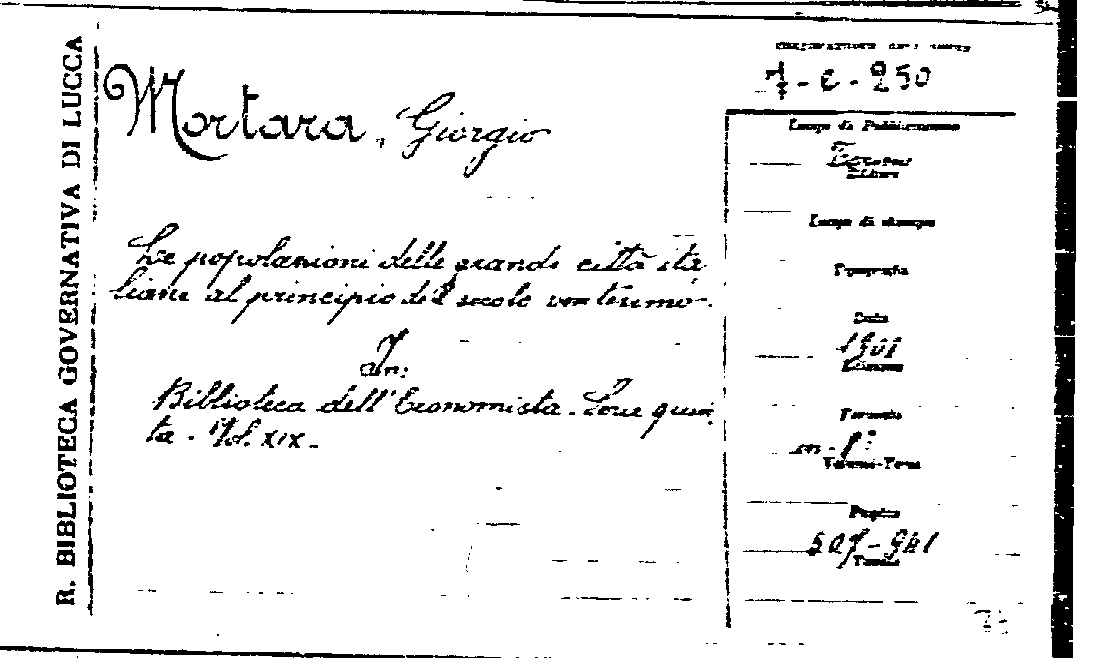 R. BIBLIOTECA GOVERNATIVA DI LUCCA
Mortara, Giorgio
Le popolazioni delle grandi città ita
liane al principio del secolo ventesimo.
In:
Biblioteca dell'Economista. Serie quin
ta. Vol. XIX.
- c - 250
Luogo di Pubblicazione
Editore
Luogo di stampa
Tipografia
Data
Edizione
Formato
in-8°
Volumi-Tomi
Pagine
Tavole